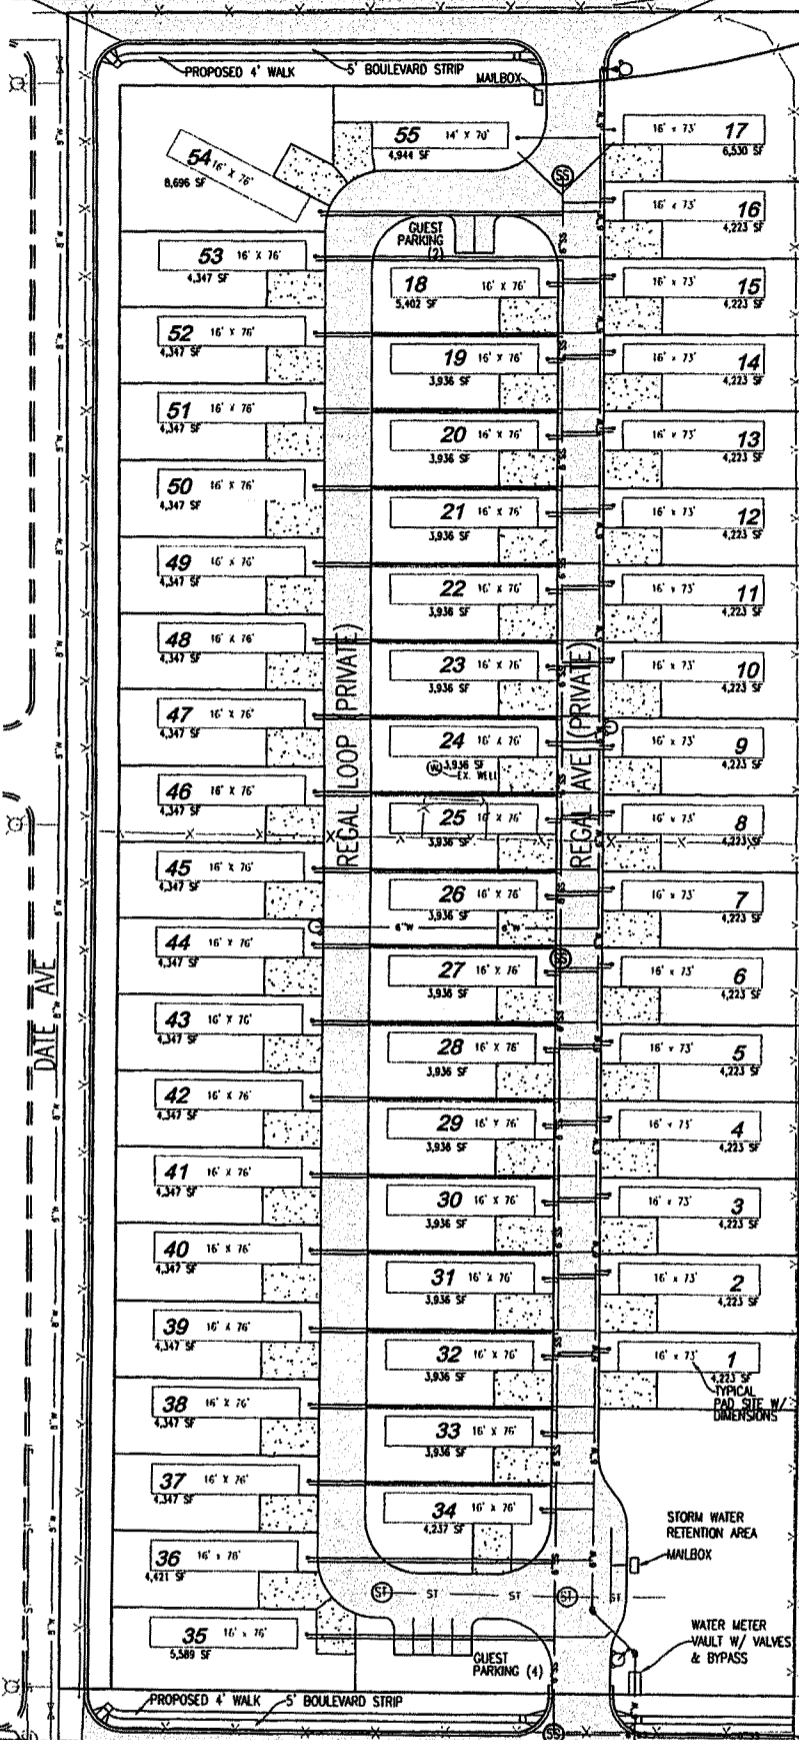 PROPOSED 4' WALK
5' BOULEVARD STRIP
MAILBOX
55 14' X 70'
4,944 SF
54 16' X 76'
8,696 SF
GUEST
PARKING
(2)
53 16' X 76'
4,347 SF
52 16' X 76'
4,347 SF
51 16' X 76'
4,347 SF
50 16' X 76'
4,347 SF
49 16' X 76'
4,347 SF
48 16' X 76'
4,347 SF
47 16' X 76'
4,347 SF
46 16' X 76'
4,347 SF
45 16' X 76'
4,347 SF
44 16' X 76'
4,347 SF
43 16' X 76'
4,347 SF
42 16' X 76'
4,347 SF
41 16' X 76'
4,347 SF
40 16' X 76'
4,347 SF
39 16' X 76'
4,347 SF
38 16' X 76'
4,347 SF
37 16' X 76'
4,347 SF
36 16' X 76'
4,421 SF
35 16' X 76'
5,589 SF
18 16' X 76'
5,402 SF
19 16' X 76'
3,936 SF
20 16' X 76'
3,936 SF
21 16' X 76'
3,936 SF
22 16' X 76'
3,936 SF
23 16' X 76'
3,936 SF
24 16' X 76'
3,936 SF
W
EX. WELL
25 16' X 76'
3,936 SF
26 16' X 76'
3,936 SF
6"W 6"W
27 16' X 76'
3,936 SF
28 16' X 76'
3,936 SF
29 16' X 76'
3,936 SF
30 16' X 76'
3,936 SF
31 16' X 76'
3,936 SF
32 16' X 76'
3,936 SF
33 16' X 76'
3,936 SF
34 16' X 76'
4,237 SF
16' x 73' 17
6,530 SF
16' x 73' 16
4,223 SF
16' x 73' 15
4,223 SF
16' x 73' 14
4,223 SF
16' x 73' 13
4,223 SF
16' x 73' 12
4,223 SF
16' x 73' 11
4,223 SF
16' x 73' 10
4,223 SF
16' x 73' 9
4,223 SF
16' x 73' 8
4,223 SF
16' x 73' 7
4,223 SF
16' x 73' 6
4,223 SF
16' x 73' 5
4,223 SF
16' x 73' 4
4,223 SF
16' x 73' 3
4,223 SF
16' x 73' 2
4,223 SF
16' x 73' 1
4,223 SF
TYPICAL
PAD SITE W/
DIMENSIONS
REGAL LOOP (PRIVATE)
REGAL AVE (PRIVATE)
DATE AVE
SS
SS
STORM WATER
RETENTION AREA
MAILBOX
ST ST ST ST ST
WATER METER
VAULT W/ VALVES
& BYPASS
GUEST
PARKING (4)
PROPOSED 4' WALK
5' BOULEVARD STRIP
SS